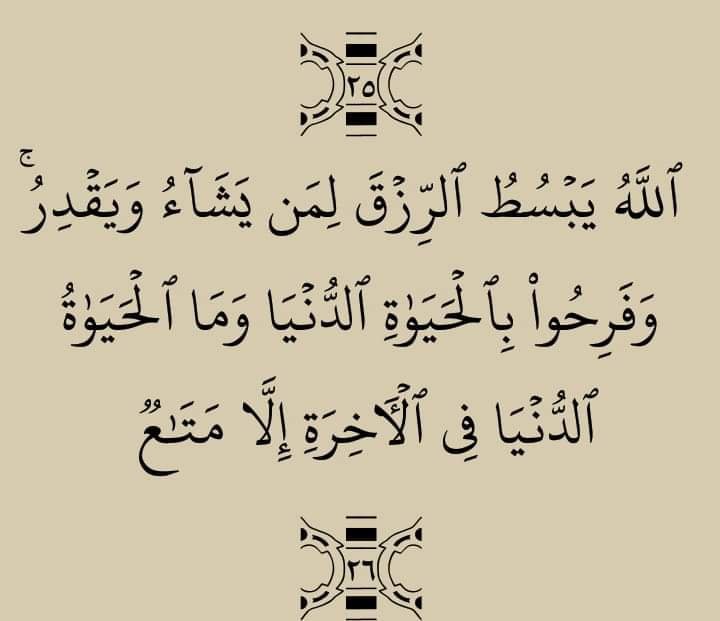 ٢٥
ٱللَّهُ يَبْسُطُ ٱلرِّزْقَ لِمَن يَشَآءُ وَيَقْدِرُ ۚ
وَفَرِحُوا۟ بِٱلْحَيَوٰةِ ٱلدُّنْيَا وَمَا ٱلْحَيَوٰةُ
ٱلدُّنْيَا فِى ٱلْـَٔاخِرَةِ إِلَّا مَتَـٰعٌ
٢٦